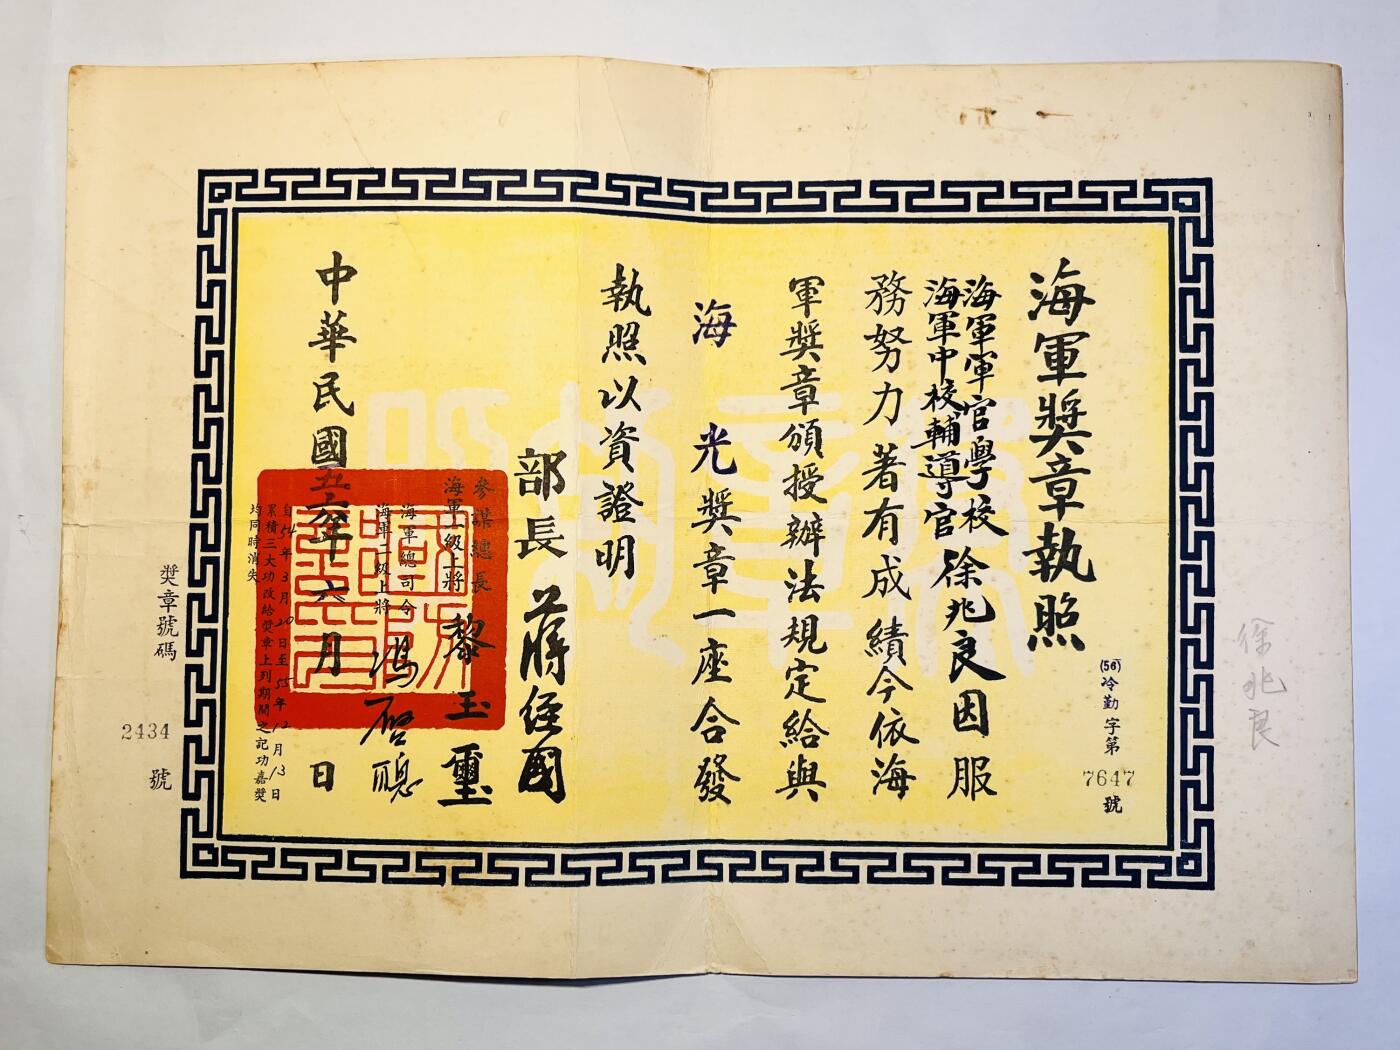 海軍獎章執照
(56)冷勤字第7647號
海軍軍官學校
海軍中校輔導官
徐兆良因服
務努力著有成績今依海
軍獎章頒授辦法規定給與
海光獎章一座合發
執照以資證明
部長蔣經國
參謀總長
海軍一級上將
黎玉璽
海軍總司令
海軍二級上將
馮啓聰
中華民國五六年六月日
自54年3月20日至55年12月13日
累積三大功改給獎章上列期間之記功嘉獎
均同時消失
獎章號碼2434號
徐兆良